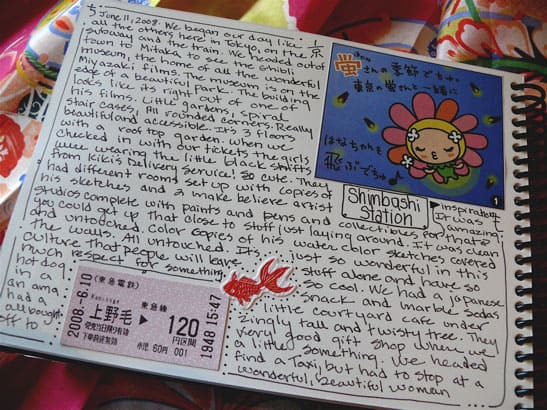 5 June 11, 2008. We began our day like
all the others here in Tokyo, on the
subway and the train. We headed out of
town to Mitaka to see the Ghibli
museum, the home of all the wonderful
Miyazaki films. The museum is on the
edge of a beautiful park. The building
looks like its right out of one of
his films. Little gardens, spiral
stair cases. All rounded corners. Really
beautiful and accessible. It's 3 floors
with a roof top garden. When we
checked in with our tickets the girls
were wearing the little black shifts
from Kiki's Delivery Service! So cute. They
had different rooms set up with copies of
his sketches and 2 make believe artist
studios complete with paints and pens and collectibles for inspiration. It was amazing
you could get up that close to stuff just laying around. It was clean
and untouched. Color copies of his water color sketches covered
the walls. All untouched. It's just so wonderful in this
culture that people will leave stuff alone and have so
much respect for something so cool. We had a Japanese
hotdog, snack and marble sodas
in a little courtyard cafe under
an amazingly tall and twisty tree. They
had a very good gift shop where we
all bought a little something. We headed
off to find a Taxi, but had to stop at a
wonderful, beautiful woman
蛍さんの季節でちゅ
東京の蛍さんと一緒に
はなちゃんも
飛ぶでちゅ♪
1
Shimbashi
Station
(東急電鉄)
2008.-6.10
上野毛
東急線
120
円区間
発売当日限り有効
下車前途無効
小児 60円 001
1948 15:47